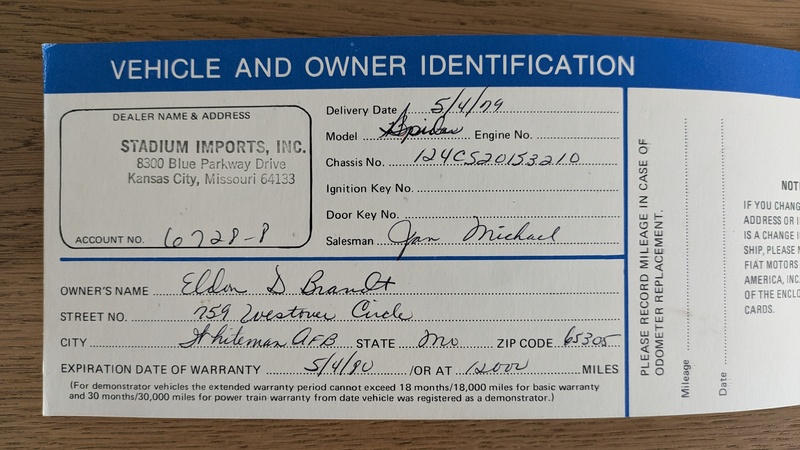 VEHICLE AND OWNER IDENTIFICATION
DEALER NAME & ADDRESS
STADIUM IMPORTS, INC.
8300 Blue Parkway Drive
Kansas City, Missouri 64133
ACCOUNT NO. 6728-8
Delivery Date 5/4/79
Model Spider Engine No.
Chassis No. 124CS20153210
Ignition Key No.
Door Key No.
Salesman Jan Michael
OWNER'S NAME Eldon D Brandt
STREET NO. 759 Westover Circle
CITY Whiteman AFB STATE Mo ZIP CODE 65305
EXPIRATION DATE OF WARRANTY 5/4/80 /OR AT 12000 MILES
(For demonstrator vehicles the extended warranty period cannot exceed 18 months/18,000 miles for basic warranty
and 30 months/30,000 miles for power train warranty from date vehicle was registered as a demonstrator.)
PLEASE RECORD MILEAGE IN CASE OF
ODOMETER REPLACEMENT.
Mileage
Date
IF YOU CHANG
ADDRESS OR I
IS A CHANGE I
SHIP, PLEASE N
FIAT MOTORS
AMERICA, INC.
OF THE ENCLO
CARDS.